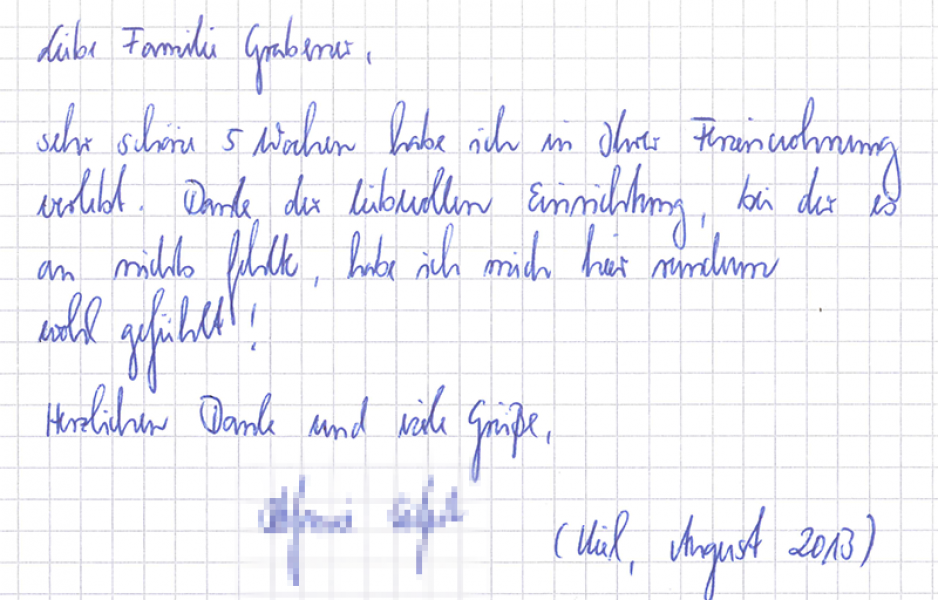 Liebe Familie Grabener,
sehr schöne 5 Wochen habe ich in Ihrer Ferienwohnung
verlebt. Dank der liebevollen Einrichtung, bei der es
an nichts fehlte, habe ich mich hier rundum
wohl gefühlt!
Herzlichen Dank und viele Grüße,
(Kiel, August 2013)